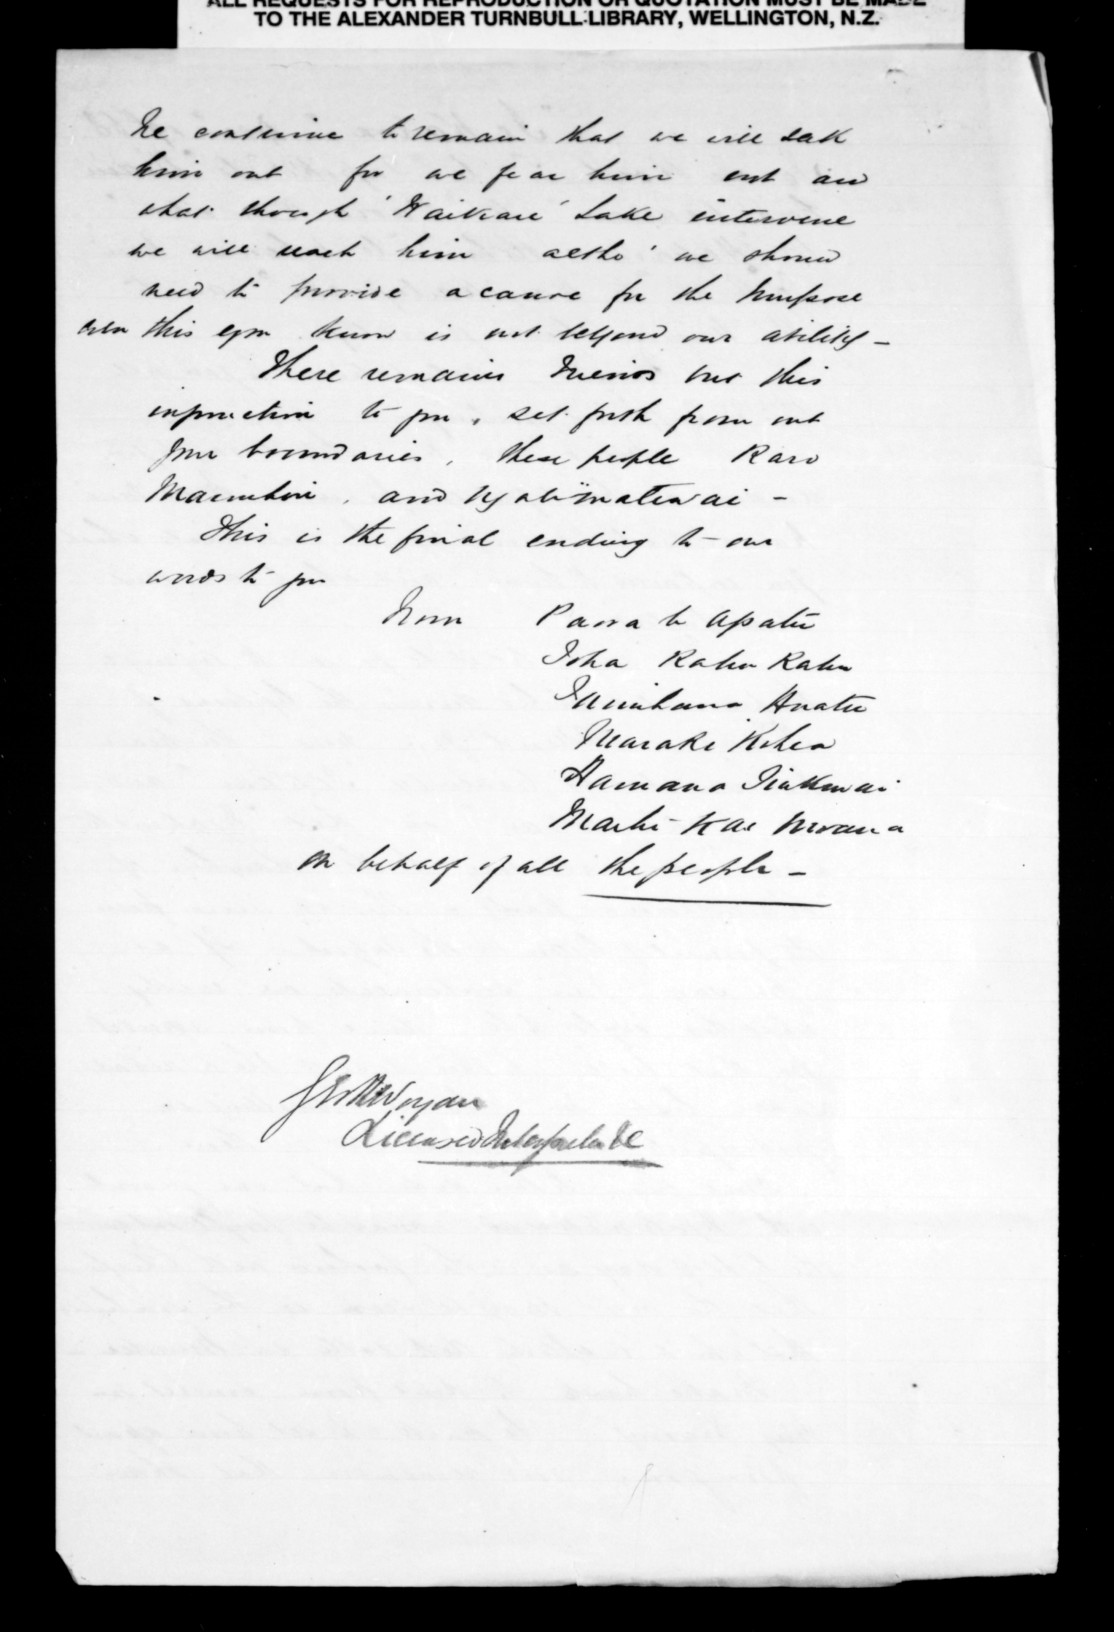 ALL REQUESTS FOR REPRODUCTION OR QUOTATION MUST BE MADE
TO THE ALEXANDER TURNBULL LIBRARY, WELLINGTON, N.Z.
he continue to remain that we will seek
him out for we fear him not and
what though 'Waikare' Lake intervene
we will reach him altho' we should
need to provide a canoe for the purpose
even this you know is not beyond our ability –
There remains Friends but this
instruction to you, set forth from out
your boundaries, these people Karo
and Ngati matewai –
This is the final ending to our
words to you
From Paora te Apatu
Ioha Kahu Kahu
Tamihana Huatu
Maraki Kohea
Hamana
Maihi Kai Moana
On behalf of all the people –
Woyon
Licensed Interpreter &c